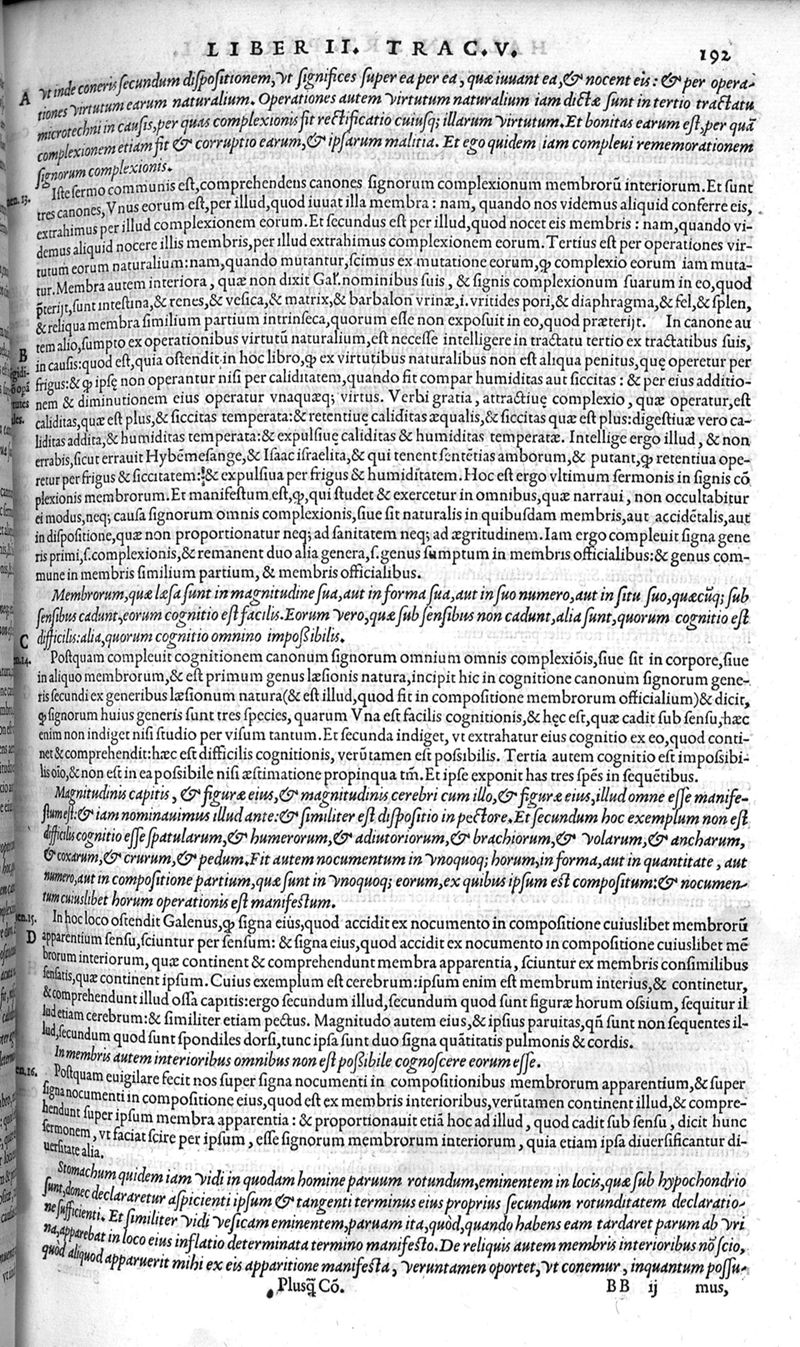 LIBER II. TRAC. V. 192
A vt inde coneris secundum dispositionem, vt significes super ea per ea, quæ iuuant ea, & nocent eis: & per opera-
tiones virtutum earum naturalium. Operationes autem virtutum naturalium iam dictæ sunt in tertio tractatu
microtechni in causis, per quas complexionis fit rectificatio cuiusq; illarum virtutum. Et bonitas earum est, per quã
complexionem etiam fit & corruptio earum, & ipsarum malitia. Et ego quidem iam compleui rememorationem
signorum complexionis.
Iste sermo communis est, comprehendens canones signorum complexionum membrorũ interiorum. Et sunt
tres canones, Vnus eorum est, per illud, quod iuuat illa membra: nam, quando nos videmus aliquid conferre eis,
extrahimus per illud complexionem eorum. Et secundus est per illud, quod nocet eis membris: nam, quando vi-
demus aliquid nocere illis membris, per illud extrahimus complexionem eorum. Tertius est per operationes vir-
tutum eorum naturalium: nam, quando mutantur, scimus ex mutatione eorum, ꝙ complexio eorum iam muta-
tur. Membra autem interiora, quæ non dixit Gal'. nominibus suis, & signis complexionum suarum in eo, quod
p̃terijt, sunt intestina, & renes, & vesica, & matrix, & barbalon vrinæ, i. vritides pori, & diaphragma, & fel, & splen,
& reliqua membra similium partium intrinseca, quorum esse non exposuit in eo, quod præterijt. In canone au
B tem alio, sumpto ex operationibus virtutũ naturalium, est necesse intelligere in tractatu tertio ex tractatibus suis,
in causis: quod est, quia ostendit in hoc libro, ꝙ ex virtutibus naturalibus non est aliqua penitus, quę operetur per
frigus: & ꝙ ipsę non operantur nisi per caliditatem, quando fit compar humiditas aut siccitas: & per eius additio-
nem & diminutionem eius operatur vnaquæq; virtus. Verbi gratia, attractiuę complexio, quæ operatur, est
caliditas, quæ est plus, & siccitas temperata: & retentiuę caliditas æqualis, & siccitas quæ est plus: digestiuæ vero ca-
liditas addita, & humiditas temperata: & expulsiuę caliditas & humiditas temperatæ. Intellige ergo illud, & non
errabis, sicut errauit Hybẽmesange, & Isaac israelita, & qui tenent sentẽtias amborum, & putant, ꝙ retentiua ope-
retur per frigus & siccitatem: & expulsiua per frigus & humiditatem. Hoc est ergo vltimum sermonis in signis cõ
plexionis membrorum. Et manifestum est, ꝙ, qui studet & exercetur in omnibus, quæ narraui, non occultabitur
ei modus, neq; causa signorum omnis complexionis, siue sit naturalis in quibusdam membris, aut accidẽtalis, aut
in dispositione, quæ non proportionatur neq; ad sanitatem neq; ad ægritudinem. Iam ergo compleuit signa gene
ris primi, s. complexionis, & remanent duo alia genera, s. genus sumptum in membris officialibus: & genus com-
mune in membris similium partium, & membris officialibus.
Membrorum, quæ læsa sunt in magnitudine sua, aut in forma sua, aut in suo numero, aut in situ suo, quæcũq; sub
sensibus cadunt, eorum cognitio est facilis. Eorum vero, quæ sub sensibus non cadunt, alia sunt, quorum cognitio est
C difficilis: alia, quorum cognitio omnino impossibilis.
Postquam compleuit cognitionem canonum signorum omnium omnis complexiõis, siue sit in corpore, siue
in aliquo membrorum, & est primum genus læsionis natura, incipit hic in cognitione canonum signorum gene-
ris secundi ex generibus læsionum natura (& est illud, quod fit in compositione membrorum officialium) & dicit,
ꝙ signorum huius generis sunt tres species, quarum Vna est facilis cognitionis, & hęc est, quæ cadit sub sensu, hæc
enim non indiget nisi studio per visum tantum. Et secunda indiget, vt extrahatur eius cognitio ex eo, quod conti-
net & comprehendit: hæc est difficilis cognitionis, verũtamen est possibilis. Tertia autem cognitio est impossibi-
lis oĩo, & non est in ea possibile nisi æstimatione propinqua tm̃. Et ipse exponit has tres spẽs in sequẽtibus.
Magnitudinis capitis, & figuræ eius, & magnitudinis cerebri cum illo, & figuræ eius, illud omne esse manife-
stum est: & iam nominauimus illud ante: & similiter est dispositio in pectore. Et secundum hoc exemplum non est
difficilis cognitio esse spatularum, & humerorum, & adiutoriorum, & brachiorum, & volarum, & ancharum,
& coxarum, & crurum, & pedum. Fit autem nocumentum in vnoquoq; horum, in forma, aut in quantitate, aut
numero, aut in compositione partium, quæ sunt in vnoquoq; eorum, ex quibus ipsum est compositum: & nocumen-
tum cuiuslibet horum operationis est manifestum.
In hoc loco ostendit Galenus, ꝙ signa eius, quod accidit ex nocumento in compositione cuiuslibet membrorũ
D apparentium sensu, sciuntur per sensum: & signa eius, quod accidit ex nocumento in compositione cuiuslibet mẽ
brorum interiorum, quæ continent & comprehendunt membra apparentia, sciuntur ex membris consimilibus
sensatis, quæ continent ipsum. Cuius exemplum est cerebrum: ipsum enim est membrum interius, & continetur,
& comprehendunt illud ossa capitis: ergo secundum illud, secundum quod sunt figuræ horum ossium, sequitur il
lud etiam cerebrum: & similiter etiam pectus. Magnitudo autem eius, & ipsius paruitas, qñ sunt non sequentes il-
lud, secundum quod sunt spondiles dorsi, tunc ipsa sunt duo signa quãtitatis pulmonis & cordis.
In membris autem interioribus omnibus non est possibile cognoscere eorum esse.
Postquam euigilare fecit nos super signa nocumenti in compositionibus membrorum apparentium, & super
signa nocumenti in compositione eius, quod est ex membris interioribus, verũtamen continent illud, & compre-
hendunt super ipsum membra apparentia: & proportionauit etiã hoc ad illud, quod cadit sub sensu, dicit hunc
sermonem, vt faciat scire per ipsum, esse signorum membrorum interiorum, quia etiam ipsa diuersificantur di-
uersitate alia.
Stomachum quidem iam vidi in quodam homine paruum rotundum, eminentem in locis, quæ sub hypochondrio
sunt, donec declararetur aspicienti ipsum & tangenti terminus eius proprius secundum rotunditatem declaratio-
ne sufficienti. Et similiter vidi vesicam eminentem, paruam ita, quòd, quando habens eam tardaret parum ab vri
na, apparebat in loco eius inflatio determinata termino manifesto. De reliquis autem membris interioribus nõ scio,
quòd aliquod apparuerit mihi ex eis apparitione manifesta, veruntamen oportet, vt conemur, inquantum possu-
Plusq̃ Cõ. BB ij mus,